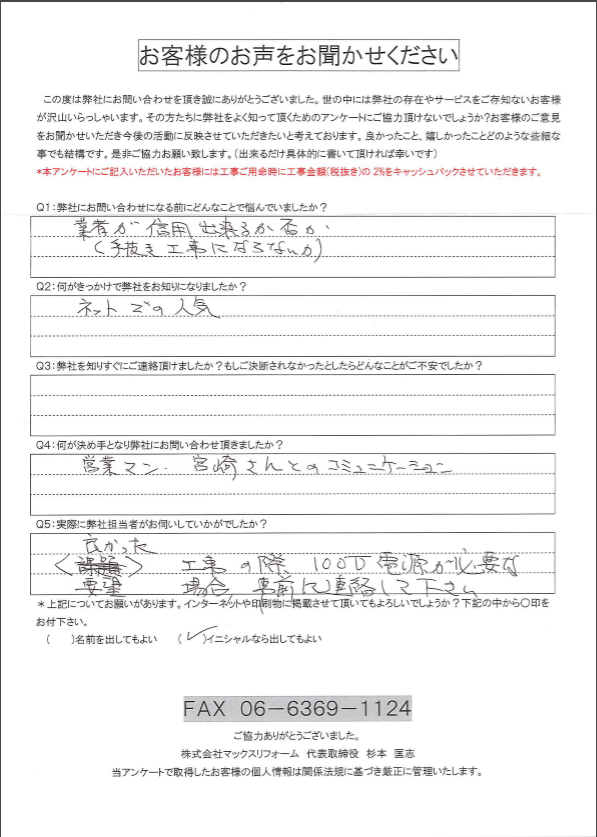 お客様のお声をお聞かせください
この度は弊社にお問い合わせを頂き誠にありがとうございました。世の中には弊社の存在やサービスをご存知ないお客様
が沢山いらっしゃいます。その方たちに弊社をよく知って頂くためのアンケートにご協力頂けないでしょうか？お客様のご意見
をお聞かせいただき今後の活動に反映させていただきたいと考えております。良かったこと、嬉しかったことどのような些細な
事でも結構です。是非ご協力お願い致します。（出来るだけ具体的に書いて頂ければ幸いです）
*本アンケートにご記入いただいたお客様には工事ご用命時に工事金額(税抜き)の 2%をキャッシュバックさせていただきます。
Q1：弊社にお問い合わせになる前にどんなことで悩んでいましたか？
業者が信用出来るか否か
(手抜き工事にならないか)
Q2：何がきっかけで弊社をお知りになりましたか？
ネットでの人気
Q3：弊社を知りすぐにご連絡頂けましたか？もしご決断されなかったとしたらどんなことがご不安でしたか？
Q4：何が決め手となり弊社にお問い合わせ頂きましたか？
営業マン．宮崎さんとのコミュニケーション
Q5：実際に弊社担当者がお伺いしていかがでしたか？
良かった
工事の際 100V電源が必要な
要望 場合、事前に連絡して下さい
＊上記についてお願いがあります。インターネットや印刷物に掲載させて頂いてもよろしいでしょうか？下記の中から〇印を
お付下さい。
（　）名前を出してもよい　（✓）イニシャルなら出してもよい
FAX 06－6369－1124
ご協力ありがとうございました。
株式会社マックスリフォーム　代表取締役　杉本　匡志
当アンケートで取得したお客様の個人情報は関係法規に基づき厳正に管理いたします。